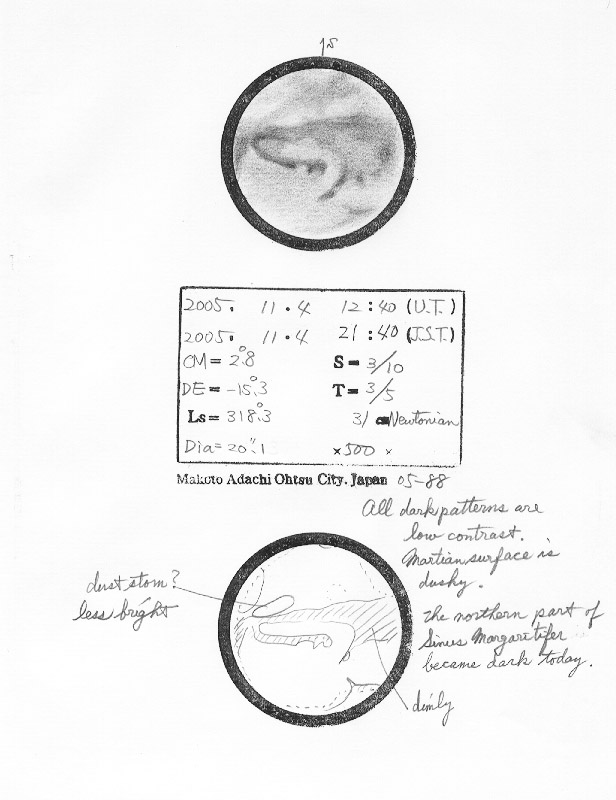 15
2005. 11.4 12:40 (U.T.)
2005. 11.4 21:40 (J.S.T.)
CM= 2°.8 S= 3/10
DE= -15°.3 T= 3/5
Ls= 318°.3 31 Newtonian
Dia= 20".1 ×500 ×
Makoto Adachi Ohtsu City. Japan 05-88
All dark patterns are
low contrast.
Martian surface is
dusky.
dust stom?
less bright
The northern part of
Sinus Margaritifer
became dark today.
dimly